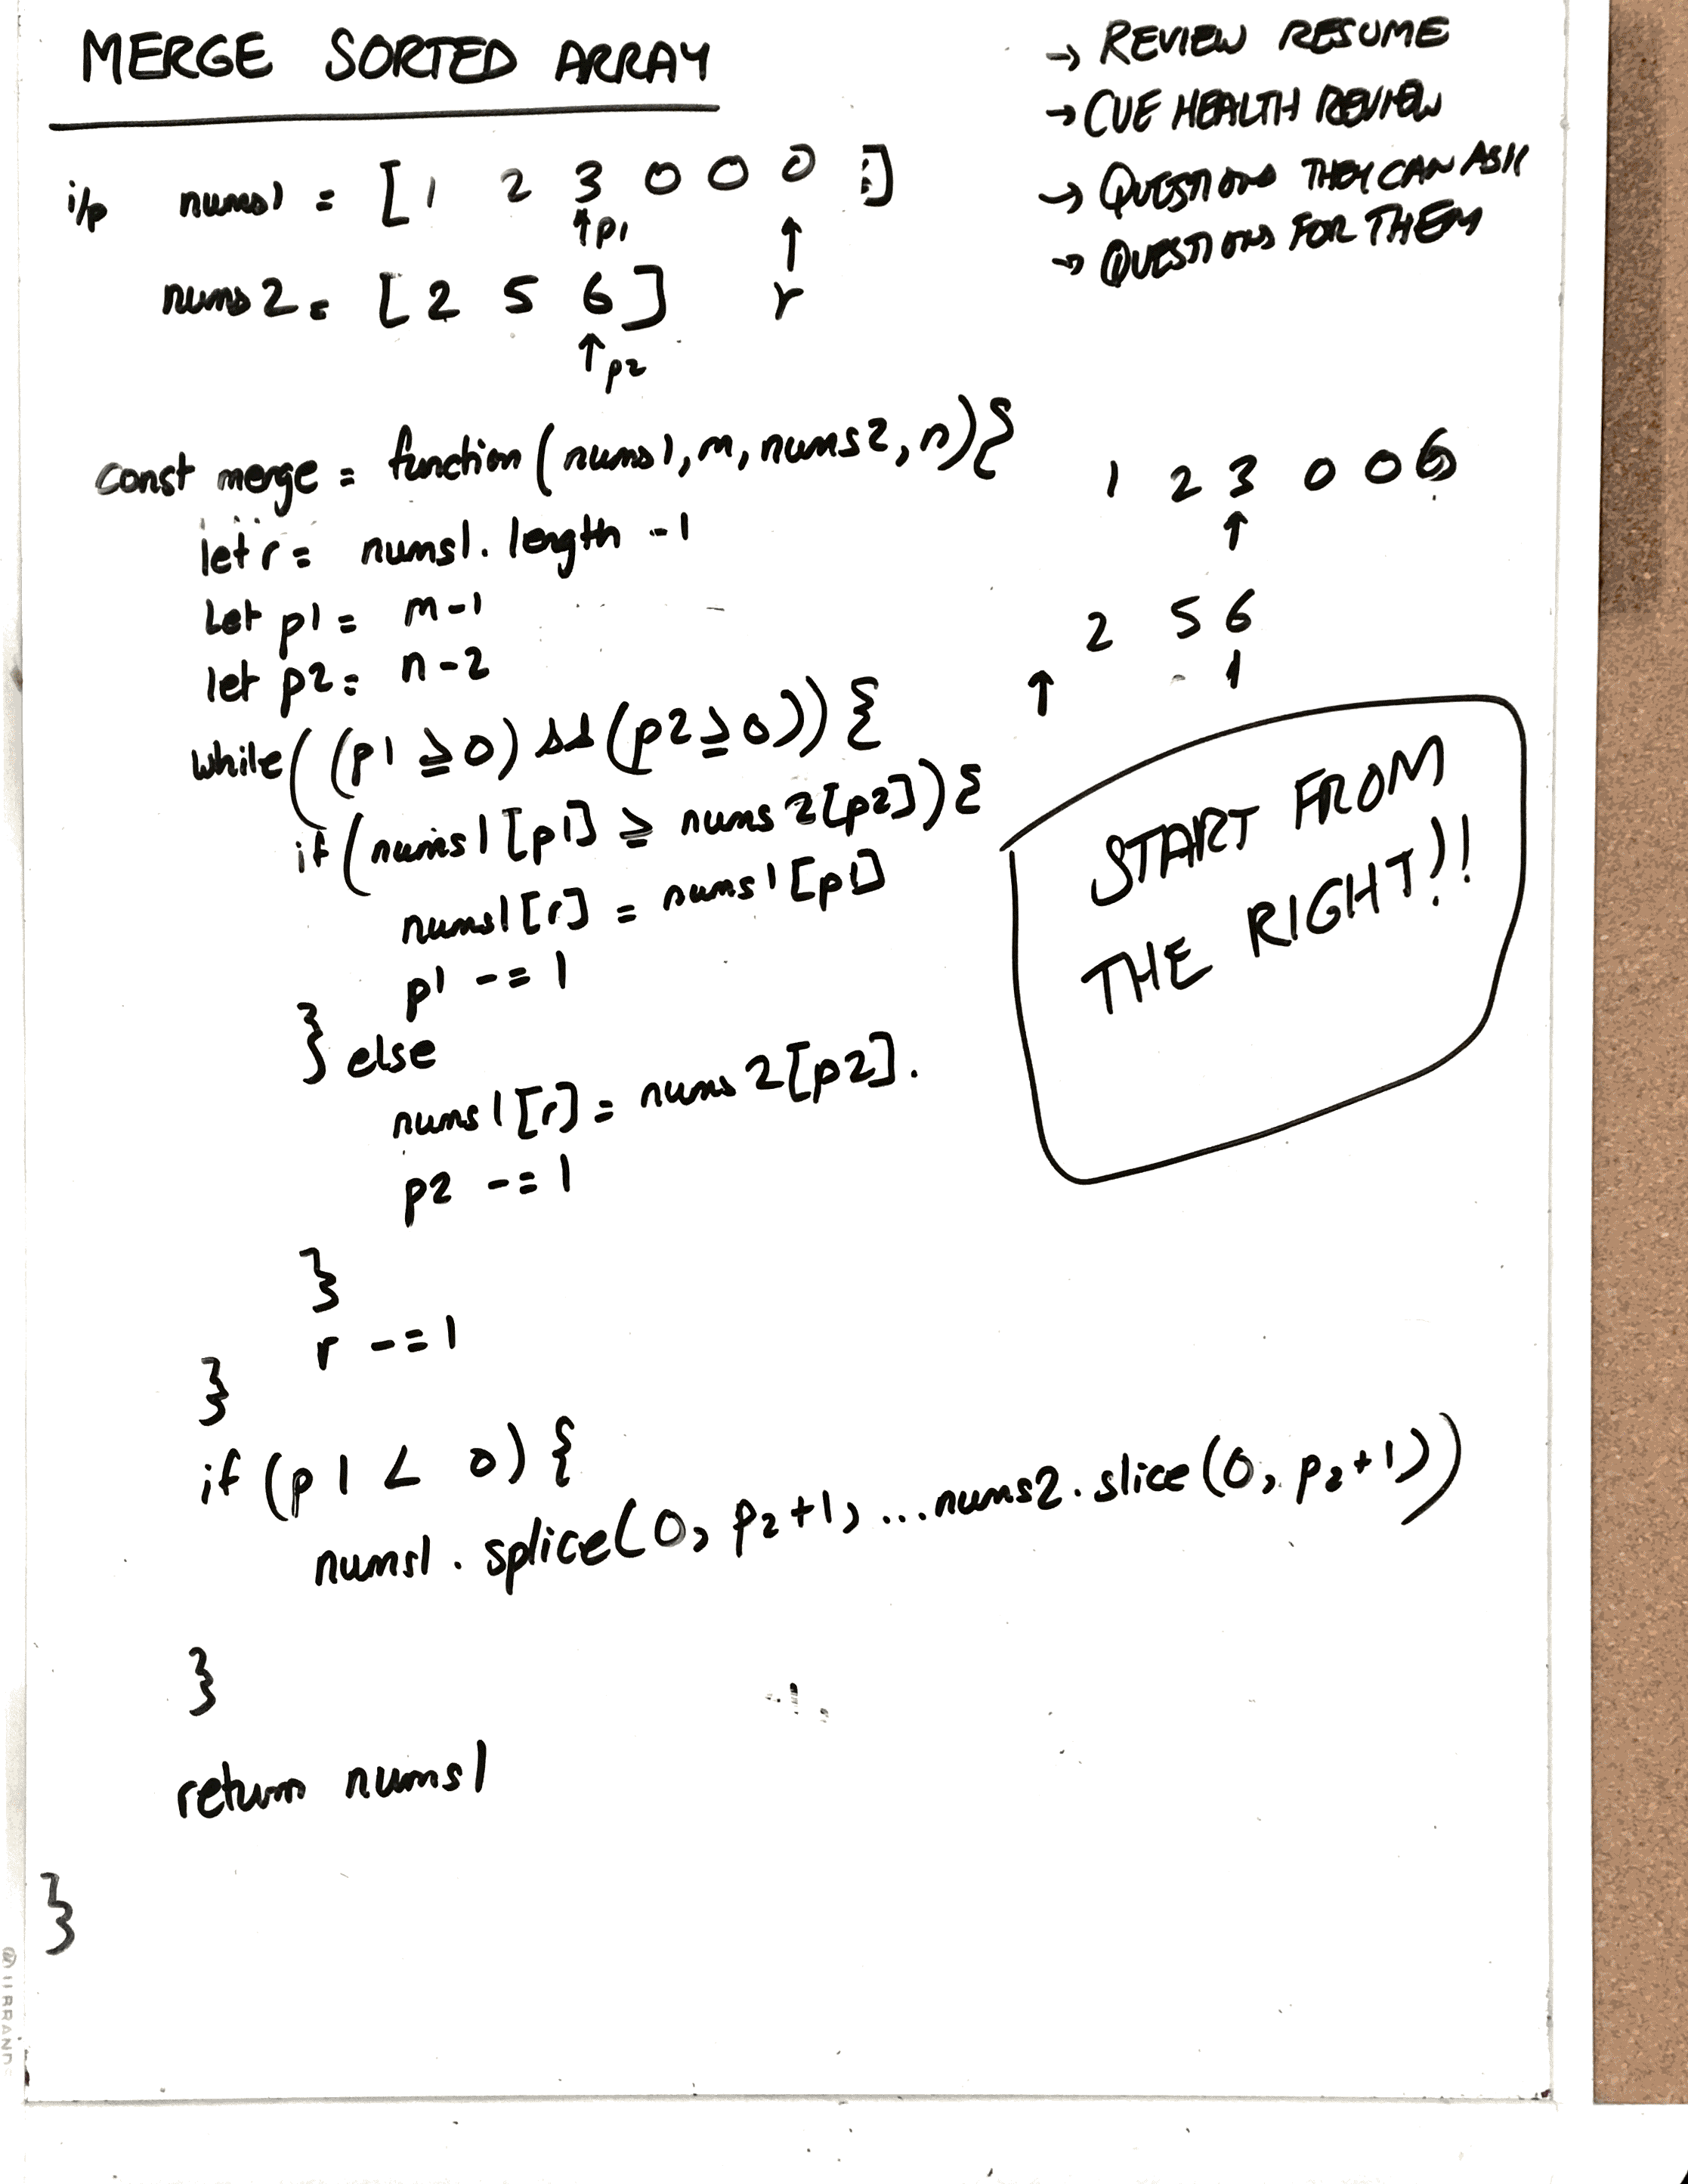 MERGE SORTED ARRAY
→ REVIEW RESUME
→ CUE HEALTH REVIEW
→ QUESTIONS THEY CAN ASK
→ QUESTIONS FOR THEM
i/p nums1 = [ 1 2 3 0 0 0 ]
↑p1 ↑
nums2 = [ 2 5 6 ] r
↑p2
const merge = function (nums1, m, nums2, n) {
let r = nums1.length - 1
Let p1 = m-1
let p2 = n-2
while ( (p1 ≥ 0) && (p2 ≥ 0)) {
if (nums1[p1] ≥ nums2[p2]) {
nums1[r] = nums1[p1]
p1 -= 1
} else
nums1[r] = nums2[p2].
p2 -= 1
}
r -= 1
}
if (p1 < 0) {
nums1.splice(0, p2+1, ...nums2.slice(0, p2+1))
}
return nums1
}
1 2 3 0 0 6
↑
2 5 6
↑
START FROM
THE RIGHT!!